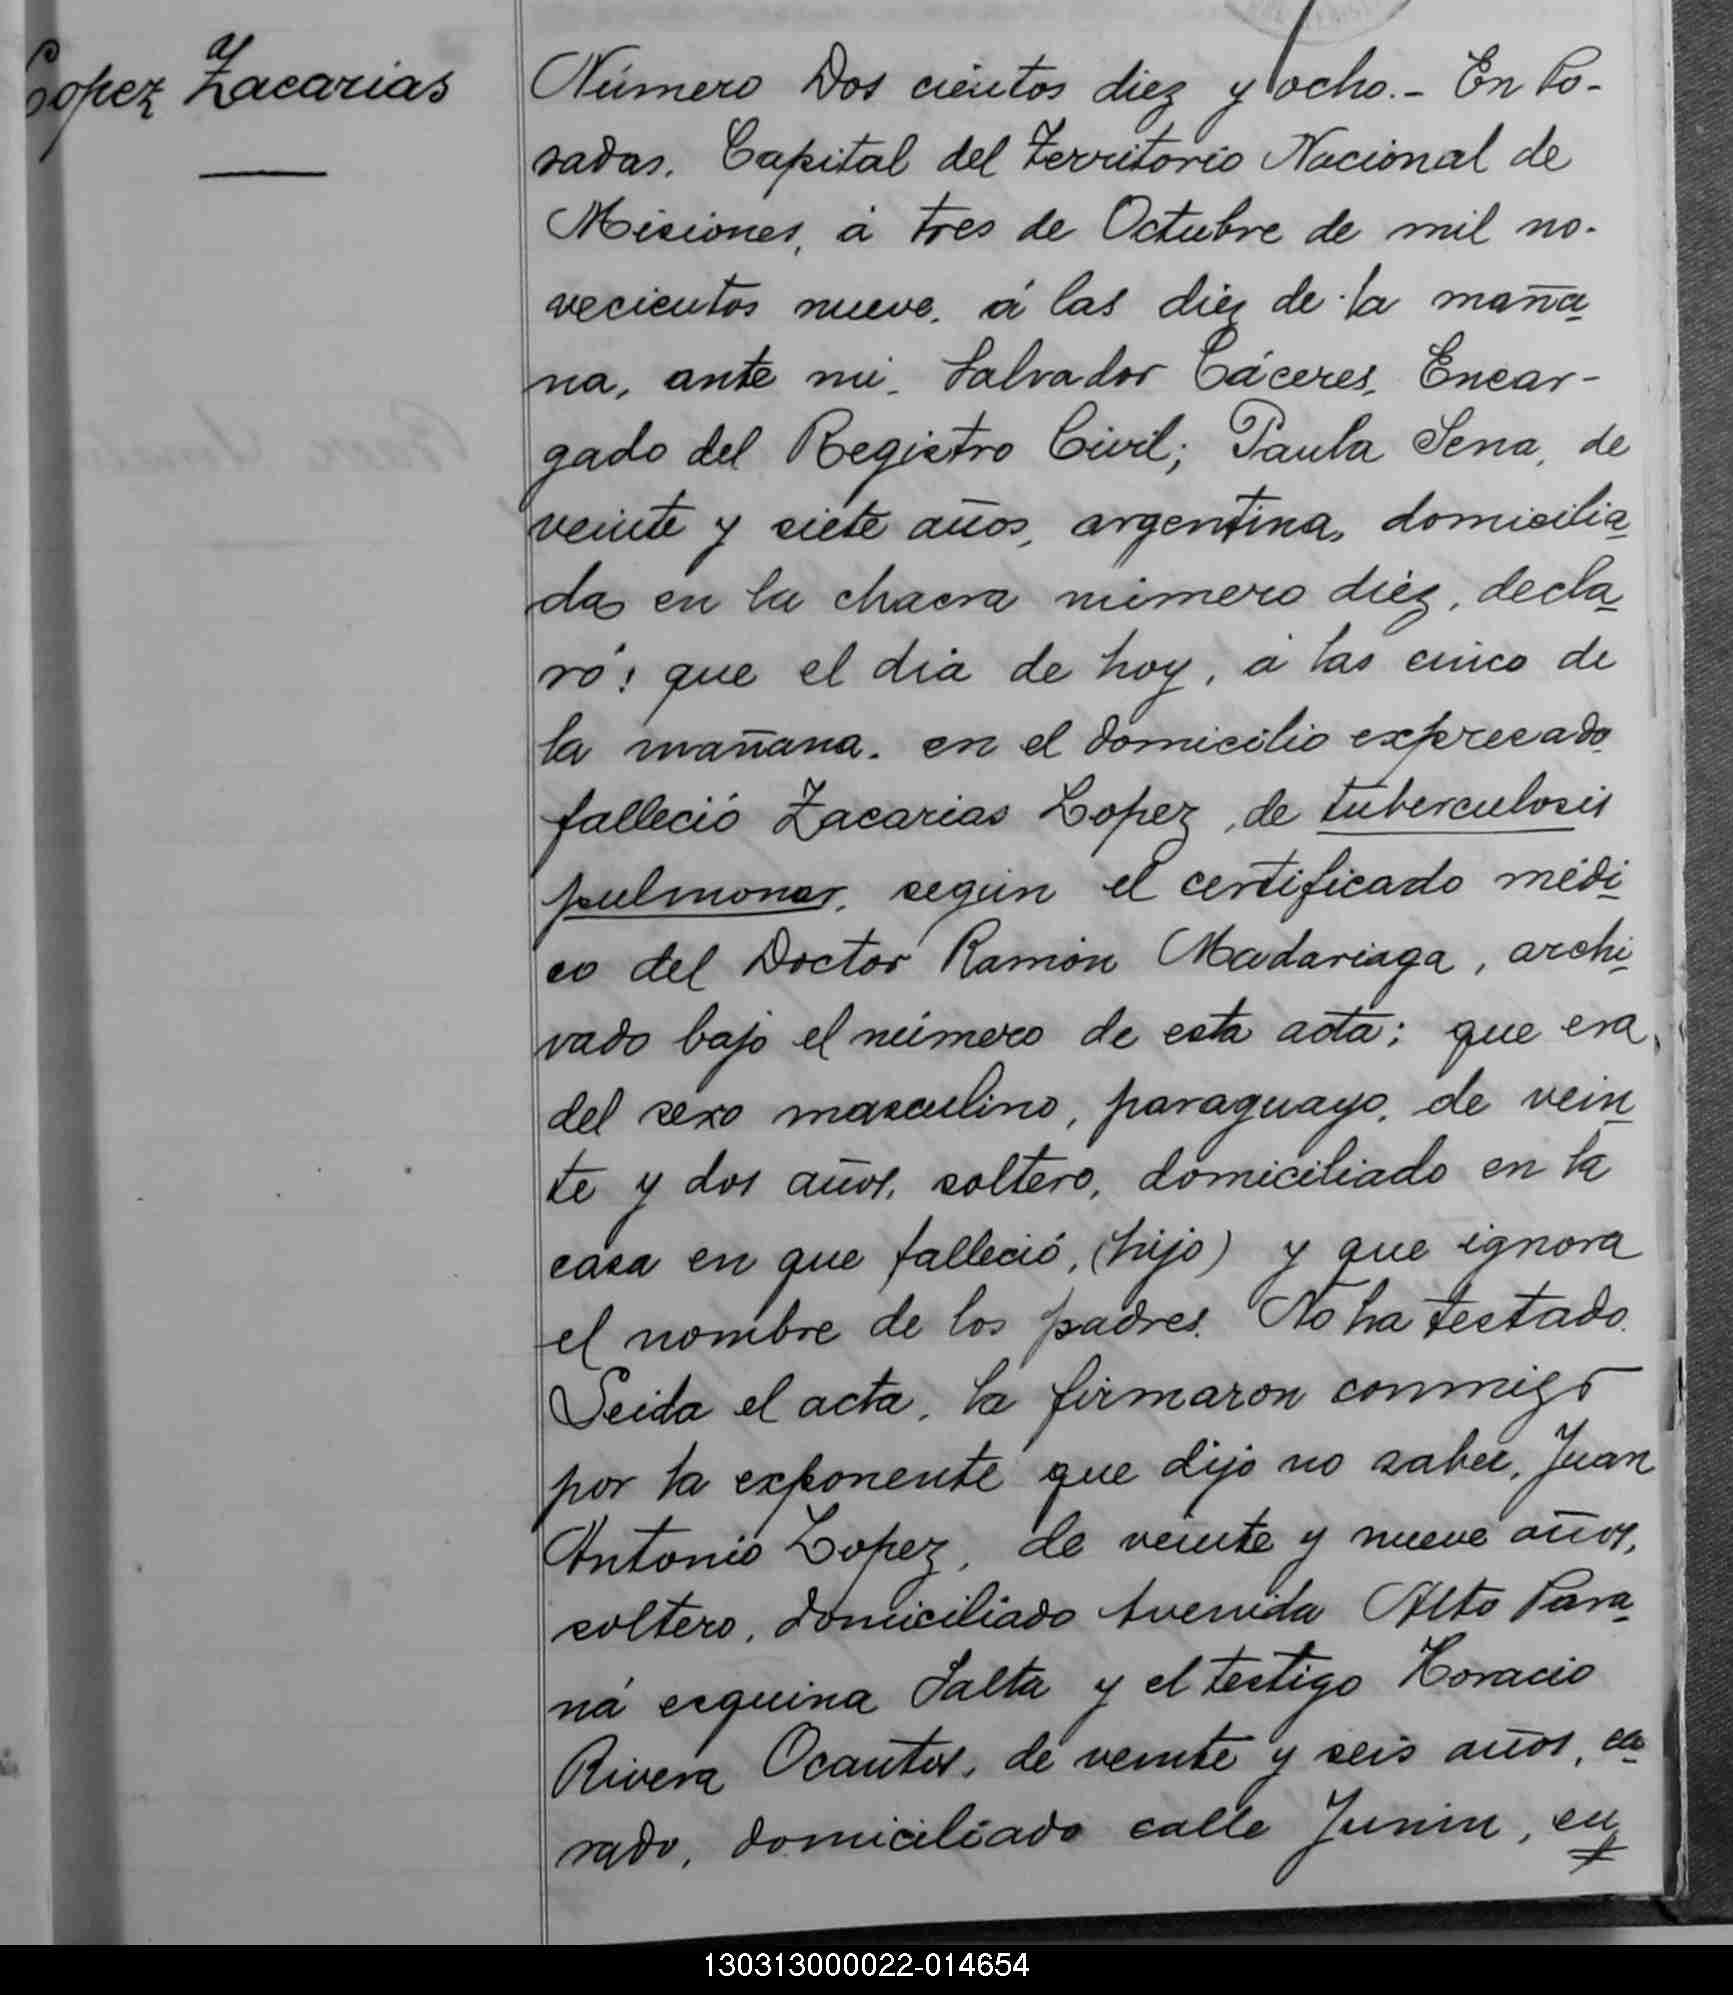 Lopez Zacarias
Número Dos cientos diez y ocho.- En Po-
sadas, Capital del Territorio Nacional de
Misiones, á tres de Octubre de mil no-
vecientos nueve, á las diez de la maña
na, ante mi, Salvador Cáceres, Encar-
gado del Registro Civil; Paula Sena, de
veinte y siete años, argentina, domicilia
da en la chacra número diez, decla
ró: que el dia de hoy, á las cinco de
la mañana, en el domicilio expresado
falleció Zacarias Lopez, de tuberculosis
pulmonar, según el certificado médi
co del Doctor Ramón Madariaga, archi
vado bajo el número de esta acta; que era
del sexo masculino, paraguayo, de vein
te y dos años, soltero, domiciliado en la
casa en que falleció, (hijo) y que ignora
el nombre de los padres. No ha testado.
Leida el acta, la firmaron conmigo
por la exponente que dijo no saber, Juan
Antonio Lopez, de veinte y nueve años,
soltero, domiciliado Avenida Alto Para
ná esquina Salta y el testigo Horacio
Rivera Ocantos, de veinte y seis años, ca
sado, domiciliado calle Junin, en
130313000022-014654